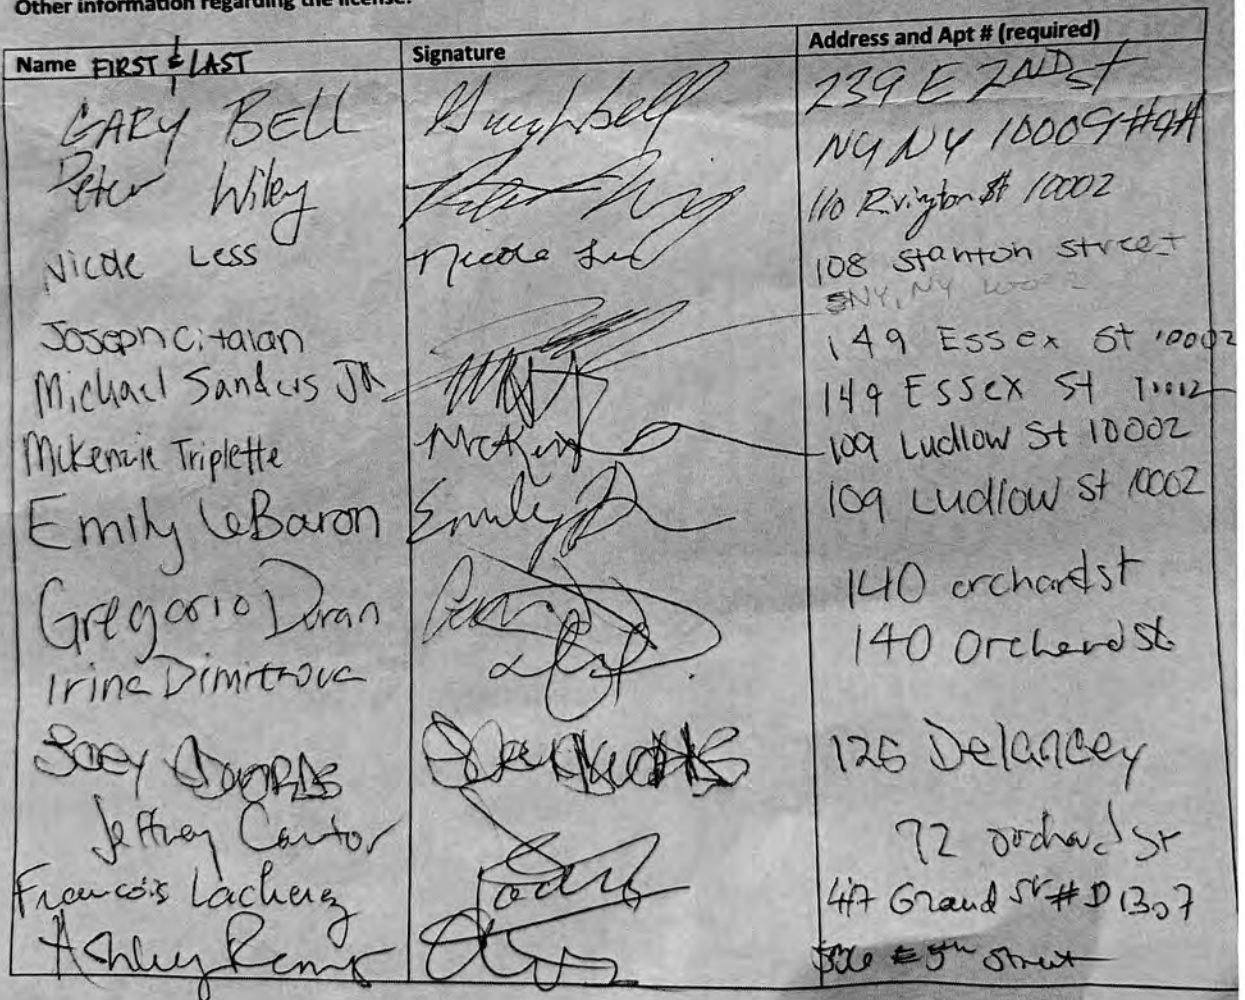 Other information regarding the license:
Name FIRST & LAST Signature Address and Apt # (required)
GARY BELL Gary Bell 239 E 2ND St
NY NY 10009 #4A
Peter Wiley 110 Rivington St 10002
Nicole Less Nicole 108 Stanton Street
NY, NY
Joseph Citalan 149 Essex St 10002
Michael Sanders JR 149 ESSEX St
McKenzie Triplette McKenz 109 Ludlow St 10002
Emily LeBaron Emily 109 Ludlow St 10002
Gregorio Duran 140 orchard st
Irina Dimitrova 140 Orchard st.
Joey 126 Delancey
Jeffrey Cantor 72 orchard St
Francois Lacherez 417 Grand St # D1307
Ashley 5th Street